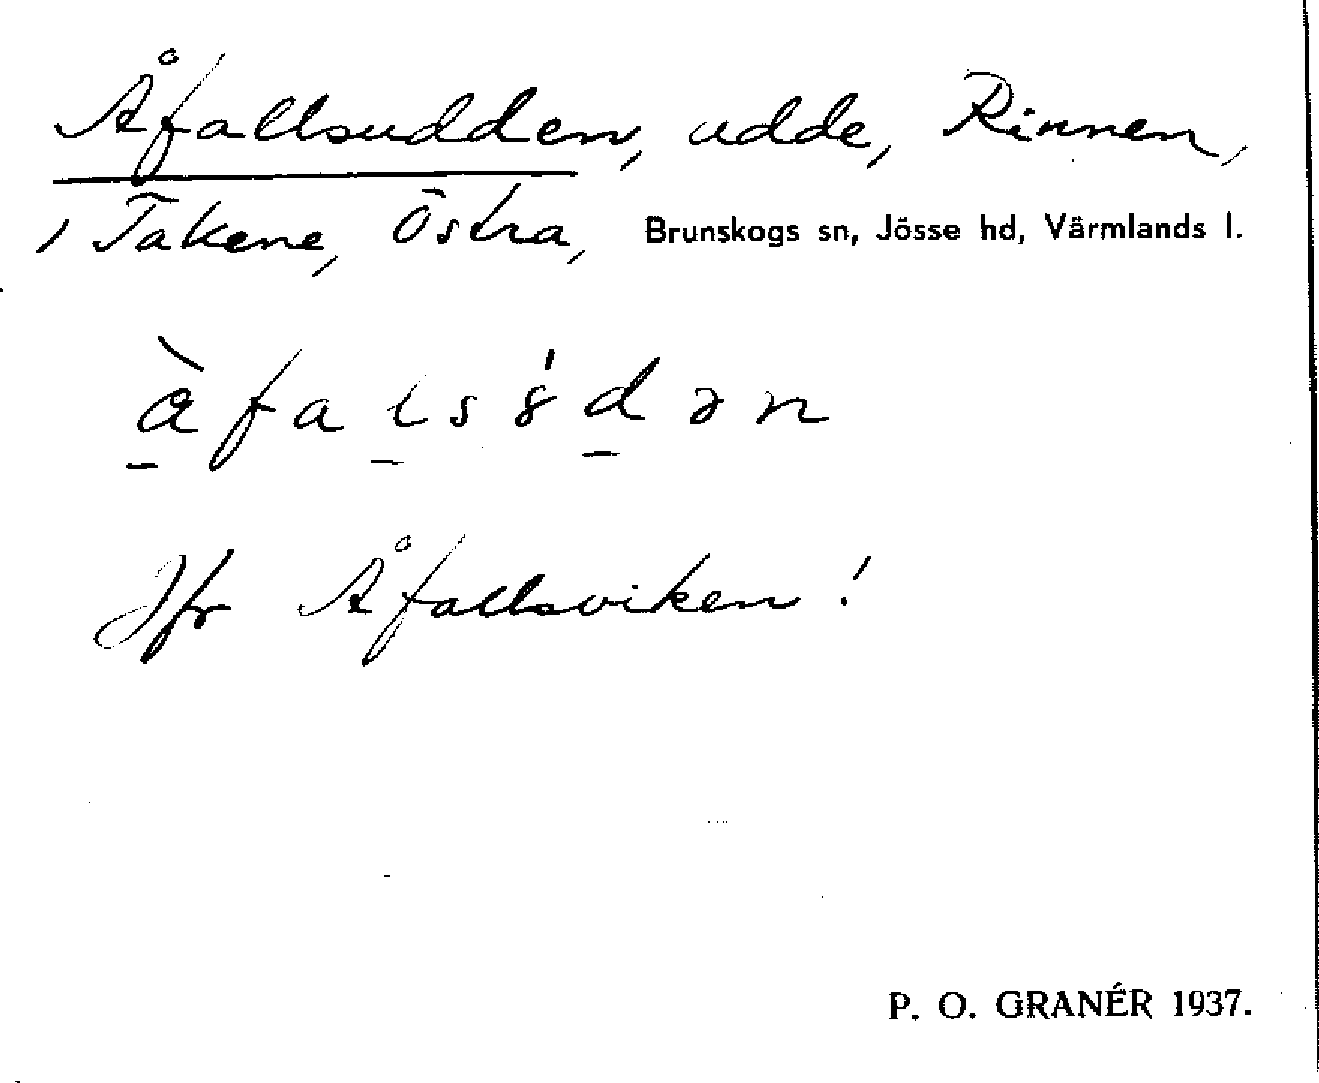 Åfallsudden, udde, Rinnen,
i Takene, Östra, Brunskogs sn, Jösse hd, Värmlands l.
Jfr Åfallsviken!
P. O. GRANÉR 1937.